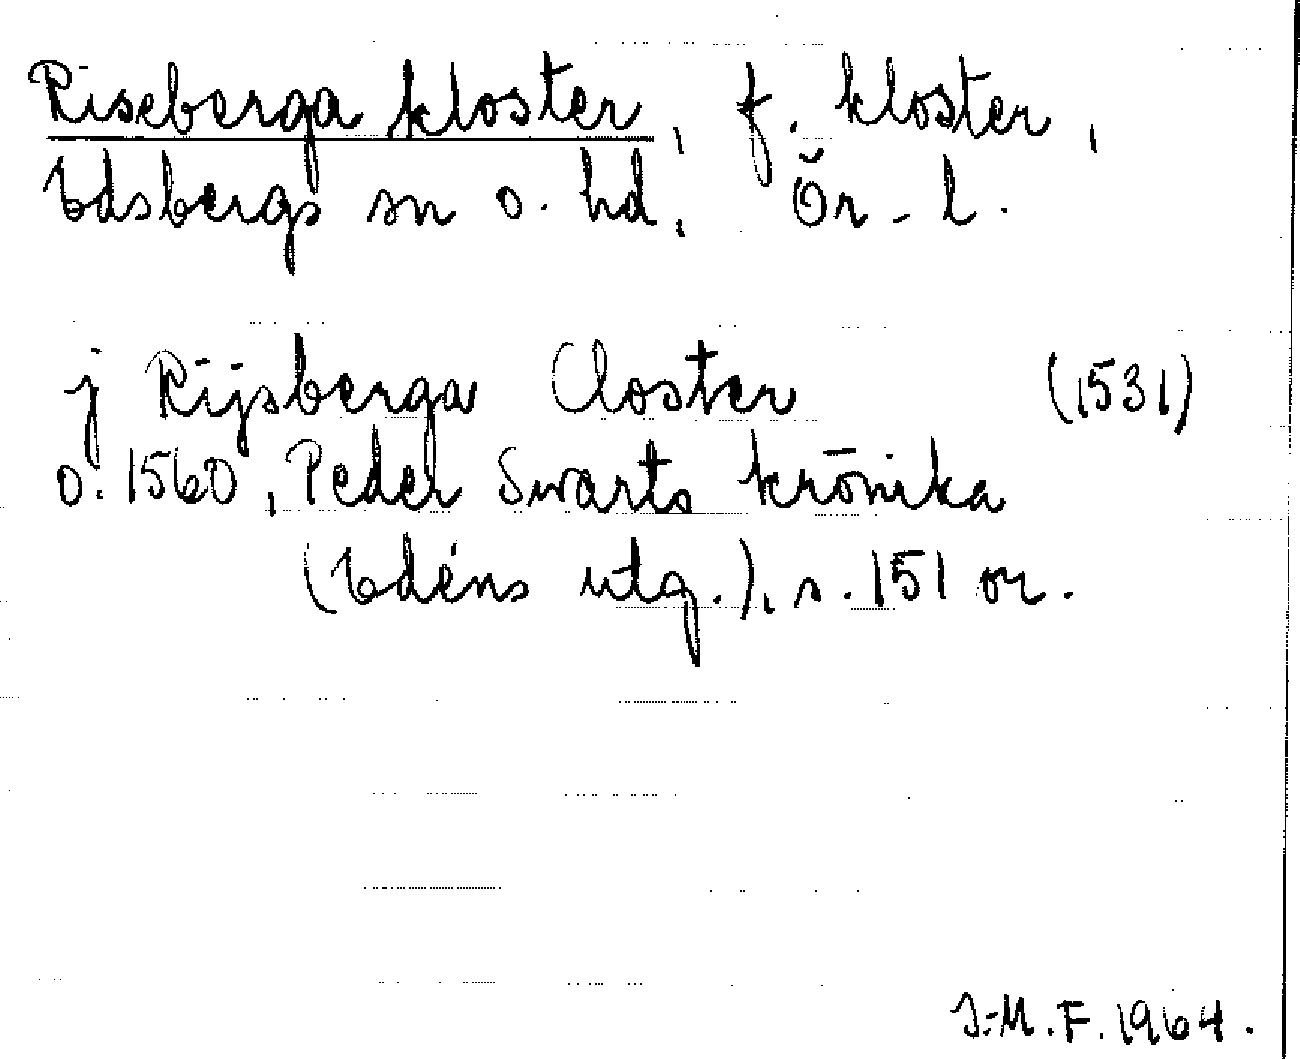 Riseberga kloster, f. kloster,
Edsbergs sn o. hd, Ör-l.
j Rijsberga Closter (1531)
o. 1560, Peder Swarts krönika
(Edéns utg.), s. 151 or.
I-M.F. 1964.